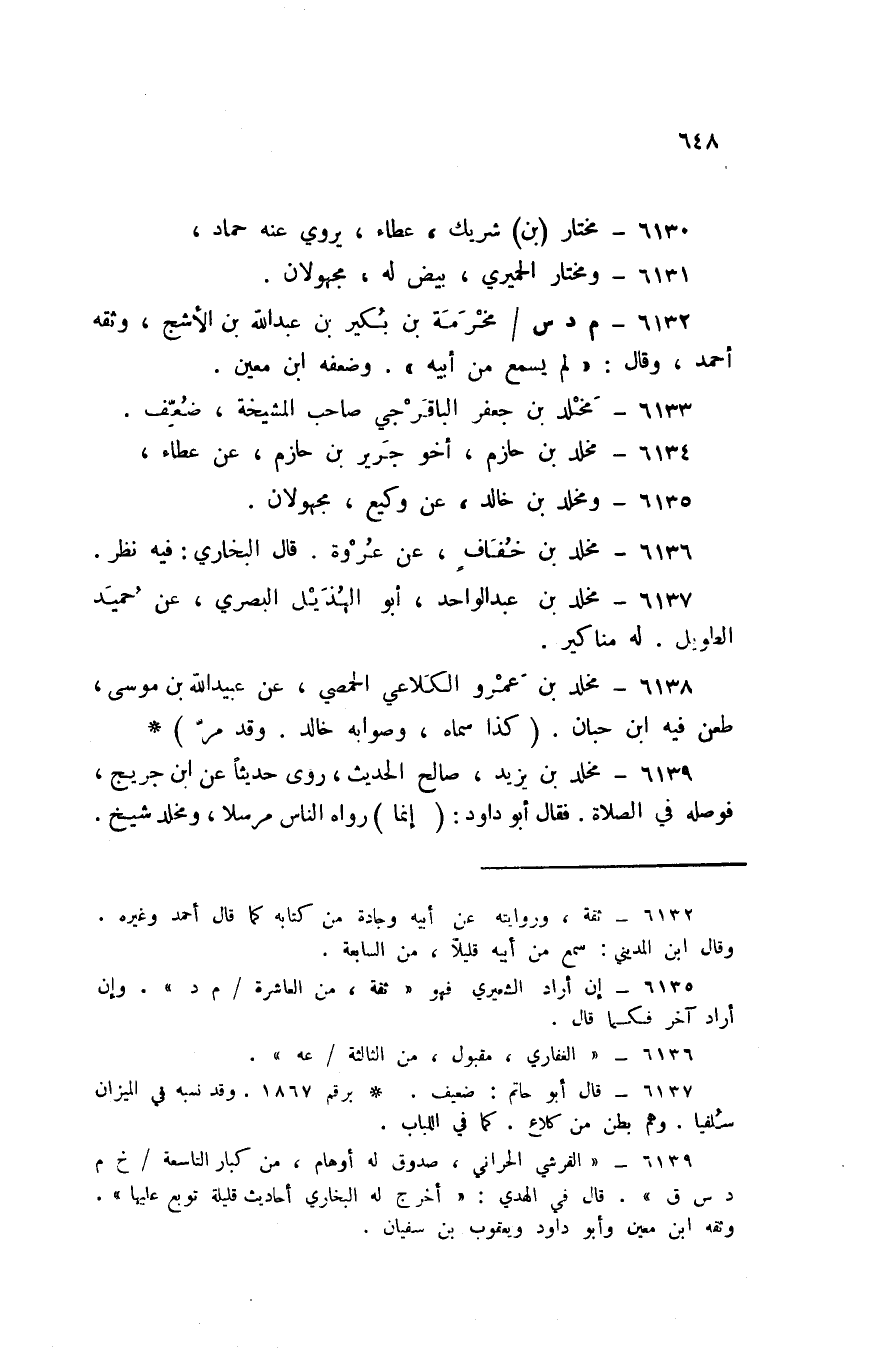 ٦٤٨
٦١٣٠ – مختار (بن) شريك ، عطاء ، يروي عنه حماد ،
٦١٣١ – ومختار الحميري ، بيض له ، مجهولان .
٦١٣٢ – م د س / مَخْرَمَة بن بُكير بن عبدالله بن الأشج ، وثقه
أحمد ، وقال : « لم يسمع من أبيه » . وضعفه ابن معين .
٦١٣٣ – مَخْلد بن جعفر الباقَرْجي صاحب المشيخة ، ضُعِّف .
٦١٣٤ – مخلد بن حازم ، أخو جَرير بن حازم ، عن عطاء ،
٦١٣٥ – ومخلد بن خالد ، عن وكيع ، مجهولان .
٦١٣٦ – مخلد بن خُفَافٍ ، عن عُرْوة . قال البخاري : فيه نظر .
٦١٣٧ – مخلد بن عبدالواحد ، أبو الهُذَيْل البصري ، عن حُميَد
الطويل . له مناكير .
٦١٣٨ – مخلد بن عَمْرو الكَلاعي الحمصي ، عن عبيدالله بن موسى ،
طعن فيه ابن حبان . ( كذا سماه ، وصوابه خالد . وقد مرّ ) *
٦١٣٩ – مخلد بن يزيد ، صالح الحديث ، روى حديثاً عن ابن جريج ،
فوصله في الصلاة . فقال أبو داود : ( إنما ) رواه الناس مرسلا ، ومخلد شيخ .
٦١٣٢ – ثقة ، وروايته عن أبيه وجادة من كتابه كما قال أحمد وغيره .
وقال ابن المديني : سمع من أبيه قليلاً ، من السابعة .
٦١٣٥ – إن أراد الشعيري فهو « ثقة ، من العاشرة / م د » . وإن
أراد آخر فكما قال .
٦١٣٦ – « الغفاري ، مقبول ، من الثالثة / عه » .
٦١٣٧ – قال أبو حاتم : ضعيف . * برقم ١٨٦٧ . وقد نسبه في الميزان
سُلفيا . وهم بطن من كلاع . كما في اللباب .
٦١٣٩ – « القرشي الحراني ، صدوق له أوهام ، من كبار التاسعة / خ م
د س ق » . قال في الهدي : « أخرج له البخاري أحاديث قليلة توبع عليها » .
وثقه ابن معين وأبو داود ويعقوب بن سفيان .